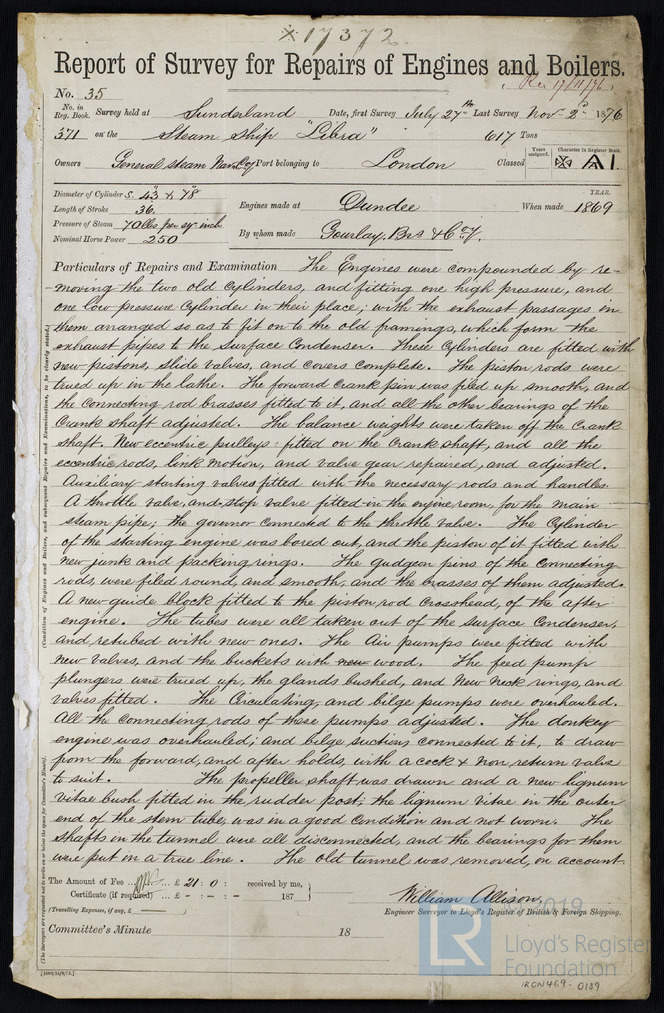 17372
Report of Survey for Repairs of Engines and Boilers.
Rec 17/11/76
No. 35
No. in Reg. Book. Survey held at Sunderland Date, first Survey July 27th Last Survey Nov. 2d 1876
371 on the Steam Ship "Libra" 617 Tons
Owners General Steam Navn Coy Port belonging to London Classed Years assigned. Character in Register Book. A 1.
Diameter of Cylinders. 43 & 78
Length of Stroke 36.
Pressure of Steam 70 lbs per sqr inch.
Nominal Horse Power 250
Engines made at Dundee When made YEAR. 1869
By whom made Gourlay, Bros & Coy.
Particulars of Repairs and Examination The Engines were compounded by re-
moving the two old cylinders, and fitting one high pressure, and
one low pressure cylinder in their place, with the exhaust passages in
them arranged so as to fit on to the old framings, which form the
exhaust pipes to the surface Condenser. These Cylinders are fitted with
new pistons, slide valves, and covers complete. The piston rods were
trued up in the lathe. The forward crank pin was filed up smooth, and
the connecting rod brasses fitted to it, and all the other bearings of the
Crank shaft adjusted. The balance weights were taken off the Crank
shaft. New eccentric pulleys fitted on the Crank shaft, and all the
eccentric rods, link motion, and valve gear repaired, and adjusted.
Auxiliary starting valves fitted with the necessary rods and handles.
A throttle valve, and stop valve fitted in the engine room, for the main
steam pipe; the governor connected to the throttle valve. The Cylinder
of the starting engine was bored out, and the piston of it fitted with
new junk and packing rings. The gudgeon pins of the connecting
rods, were filed round, and smooth, and the brasses of them adjusted.
A new guide block fitted to the piston rod crosshead, of the after
engine. The tubes were all taken out of the surface Condenser,
and retubed with new ones. The Air pumps were fitted with
new valves, and the buckets with new wood. The feed pump
plungers were trued up, the glands bushed, and New neck rings, and
valves fitted. The Circulating, and bilge pumps were overhauled.
All the connecting rods of these pumps adjusted. The donkey
engine was overhauled; and bilge suctions connected to it, to draw
from the forward, and after holds, with a cock & non return valve
to suit. The propeller shaft was drawn and a new lignum
vitae bush fitted in the rudder post; the lignum vitae in the outer
end of the stern tube, was in a good condition and not worn. The
shafts in the tunnel were all disconnected, and the bearings for them
were put in a true line. The old tunnel was removed, on account
(Condition of Engines and Boilers, and subsequent Repairs and Examinations, to be clearly stated.)
(The Surveyors are requested not to write on or below the space for Committee's Minute).
The Amount of Fee £ 21 : 0 : received by me,
Certificate (if required) £ - : - : - 187
(Travelling Expenses, if any, £ )
William Allison,
Engineer Surveyor to Lloyd's Register of British & Foreign Shipping.
Committee's Minute 18
2019
LR
Lloyd's Register
Foundation
IRON469-0189